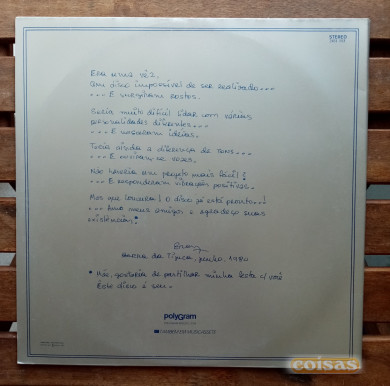 STEREO
Era uma vez,
Um disco impossível de ser realizado...
... E surgiram rostos.
Seria muito difícil lidar com várias
personalidades diferentes...
... E nasceram idéias.
Teria ainda a diferença de tons...
... E ouviram-se vozes.
Não haveria um projeto mais fácil!
... E responderam vibrações positivas.
Mas que loucura! O disco já está pronto...!
... Amo meus amigos e agradeço suas
existências*
Barra da Tijuca, junho, 1984
* Mãe, gostaria de partilhar minha festa c/ você
Este disco é seu.
polyGram
coisas